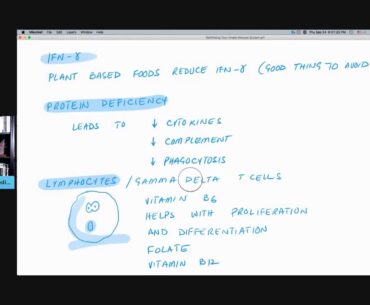 IFN-γ
PLANT BASED FOODS REDUCE IFN-γ (GOOD THING TO AVOID
PROTEIN DEFICIENCY
LEADS TO ↓ CYTOKINES
↓ COMPLEMENT
↓ PHAGOCYTOSIS
LYMPHOCYTES / GAMMA DELTA T CELLS
VITAMIN B6
HELPS WITH PROLIFERATION
AND DIFFERENTIATION
FOLATE
VITAMIN B12